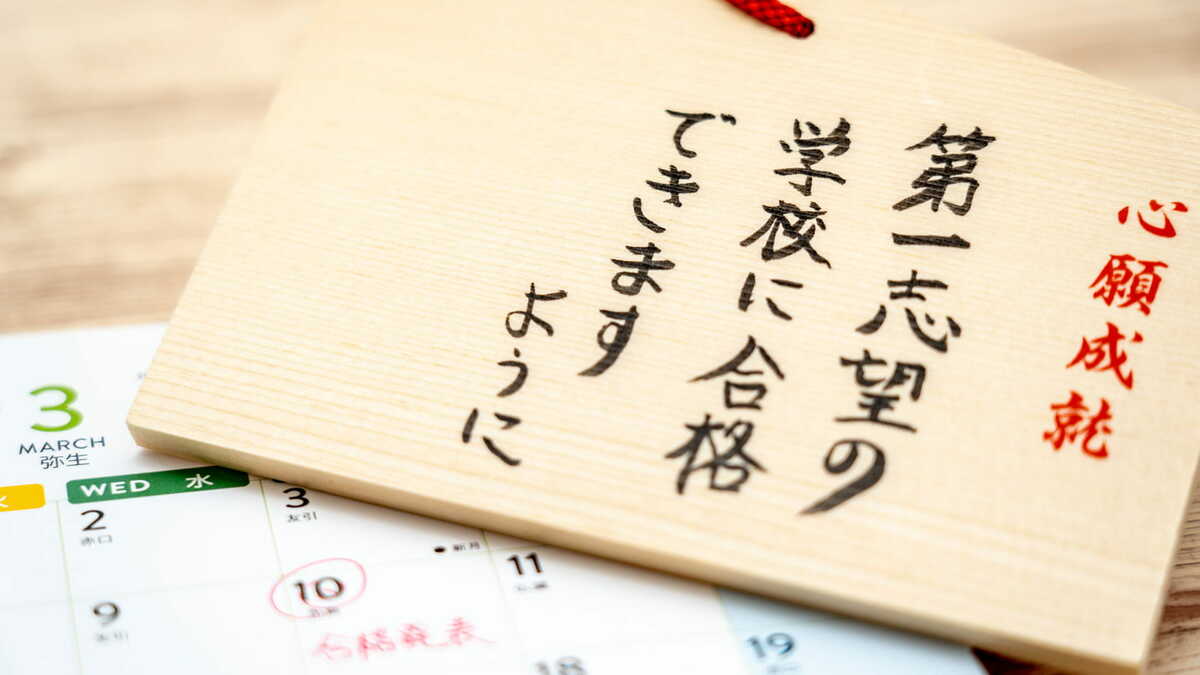 心願成就
第一志望の
学校に合格
できます
ように
3
MARCH
弥生
WED 水
2
赤口
3
友引
新月
9
友引
10
合格発表
11
18
19